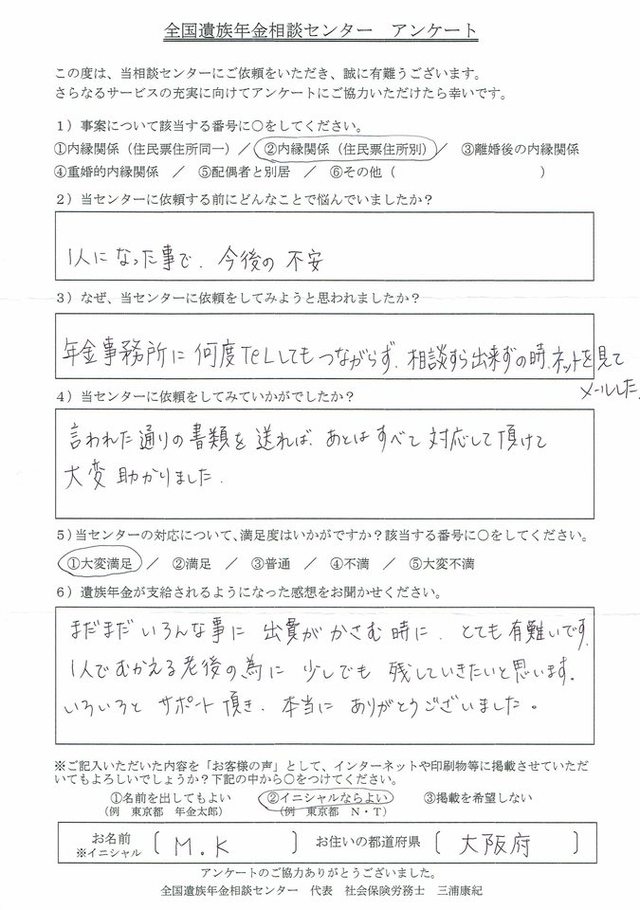 全国遺族年金相談センター　アンケート
この度は、当相談センターにご依頼をいただき、誠に有難うございます。
さらなるサービスの充実に向けてアンケートにご協力いただけたら幸いです。
1）事案について該当する番号に○をしてください。
①内縁関係（住民票住所同一）／②内縁関係（住民票住所別）／　③離婚後の内縁関係
④重婚的内縁関係　／　⑤配偶者と別居　／　⑥その他（　　　　　　　　　　）
2）当センターに依頼する前にどんなことで悩んでいましたか？
1人になった事で、今後の不安
3）なぜ、当センターに依頼をしてみようと思われましたか？
年金事務所に何度TELしてもつながらず、相談すら出来ずの時、ネットを見て
メールした。
4）当センターに依頼をしてみていかがでしたか？
言われた通りの書類を送れば、あとはすべて対応して頂けて
大変助かりました。
5）当センターの対応について、満足度はいかがですか？該当する番号に○をしてください。
①大変満足　／　②満足　／　③普通　／　④不満　／　⑤大変不満
6）遺族年金が支給されるようになった感想をお聞かせください。
まだまだいろんな事に出費がかさむ時に、とても有難いです。
1人でむかえる老後の為に少しでも残していきたいと思います。
いろいろとサポート頂き、本当にありがとうございました。
※ご記入いただいた内容を「お客様の声」として、インターネットや印刷物等に掲載させていただ
いてもよろしいでしょうか？下記の中から○をつけてください。
①名前を出してもよい　　②イニシャルならよい　　③掲載を希望しない
（例　東京都　年金太郎）　　（例　東京都　N・T）
お名前
※イニシャル
〔 M.K 〕　お住いの都道府県　〔 大阪府 〕
アンケートのご協力ありがとうございました。
全国遺族年金相談センター　代表　社会保険労務士　三浦康紀